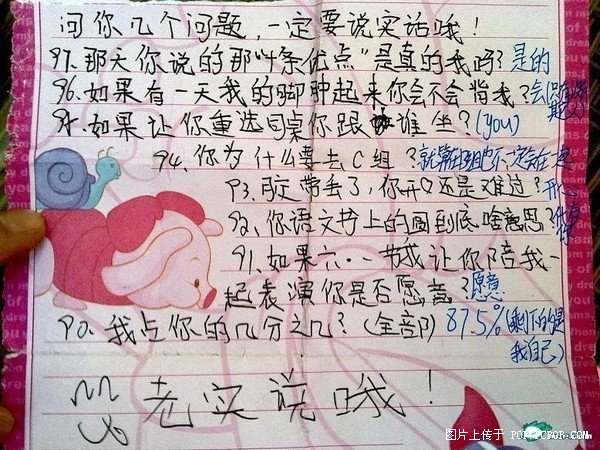 问你几个问题，一定要说实话哦！
97.那天你说的那“4条优点”是真的我吗？是的
96.如果有一天我的脚肿起来你会不会背我？会
95.如果让你重选同桌你跟谁坐？(you)
94.你为什么要去C组？
93.胶带丢了，你开心还是难过？开心
92.你语文书上的圈到底啥意思？
91.如果六·一节域让你陪我一
起表演你是否愿意？愿意
90.我占你的几分之几？(全部) 87.5%(剩下的是
我自己)
老实说哦！
图片上传于 POPOTOPOP.COM